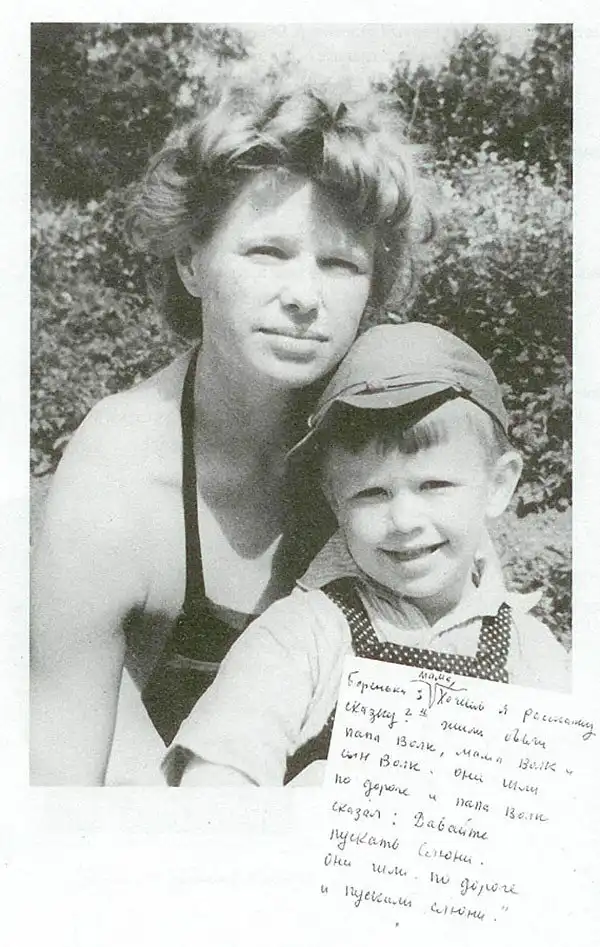 мама,
Боренька 3 Хочешь я расскажу
сказку? " Жили были
папа Волк, мама Волк и
сын Волк. Они шли
по дороге и папа Волк
сказал: Давайте
пускать слюни.
Они шли по дороге
и пускали слюни."